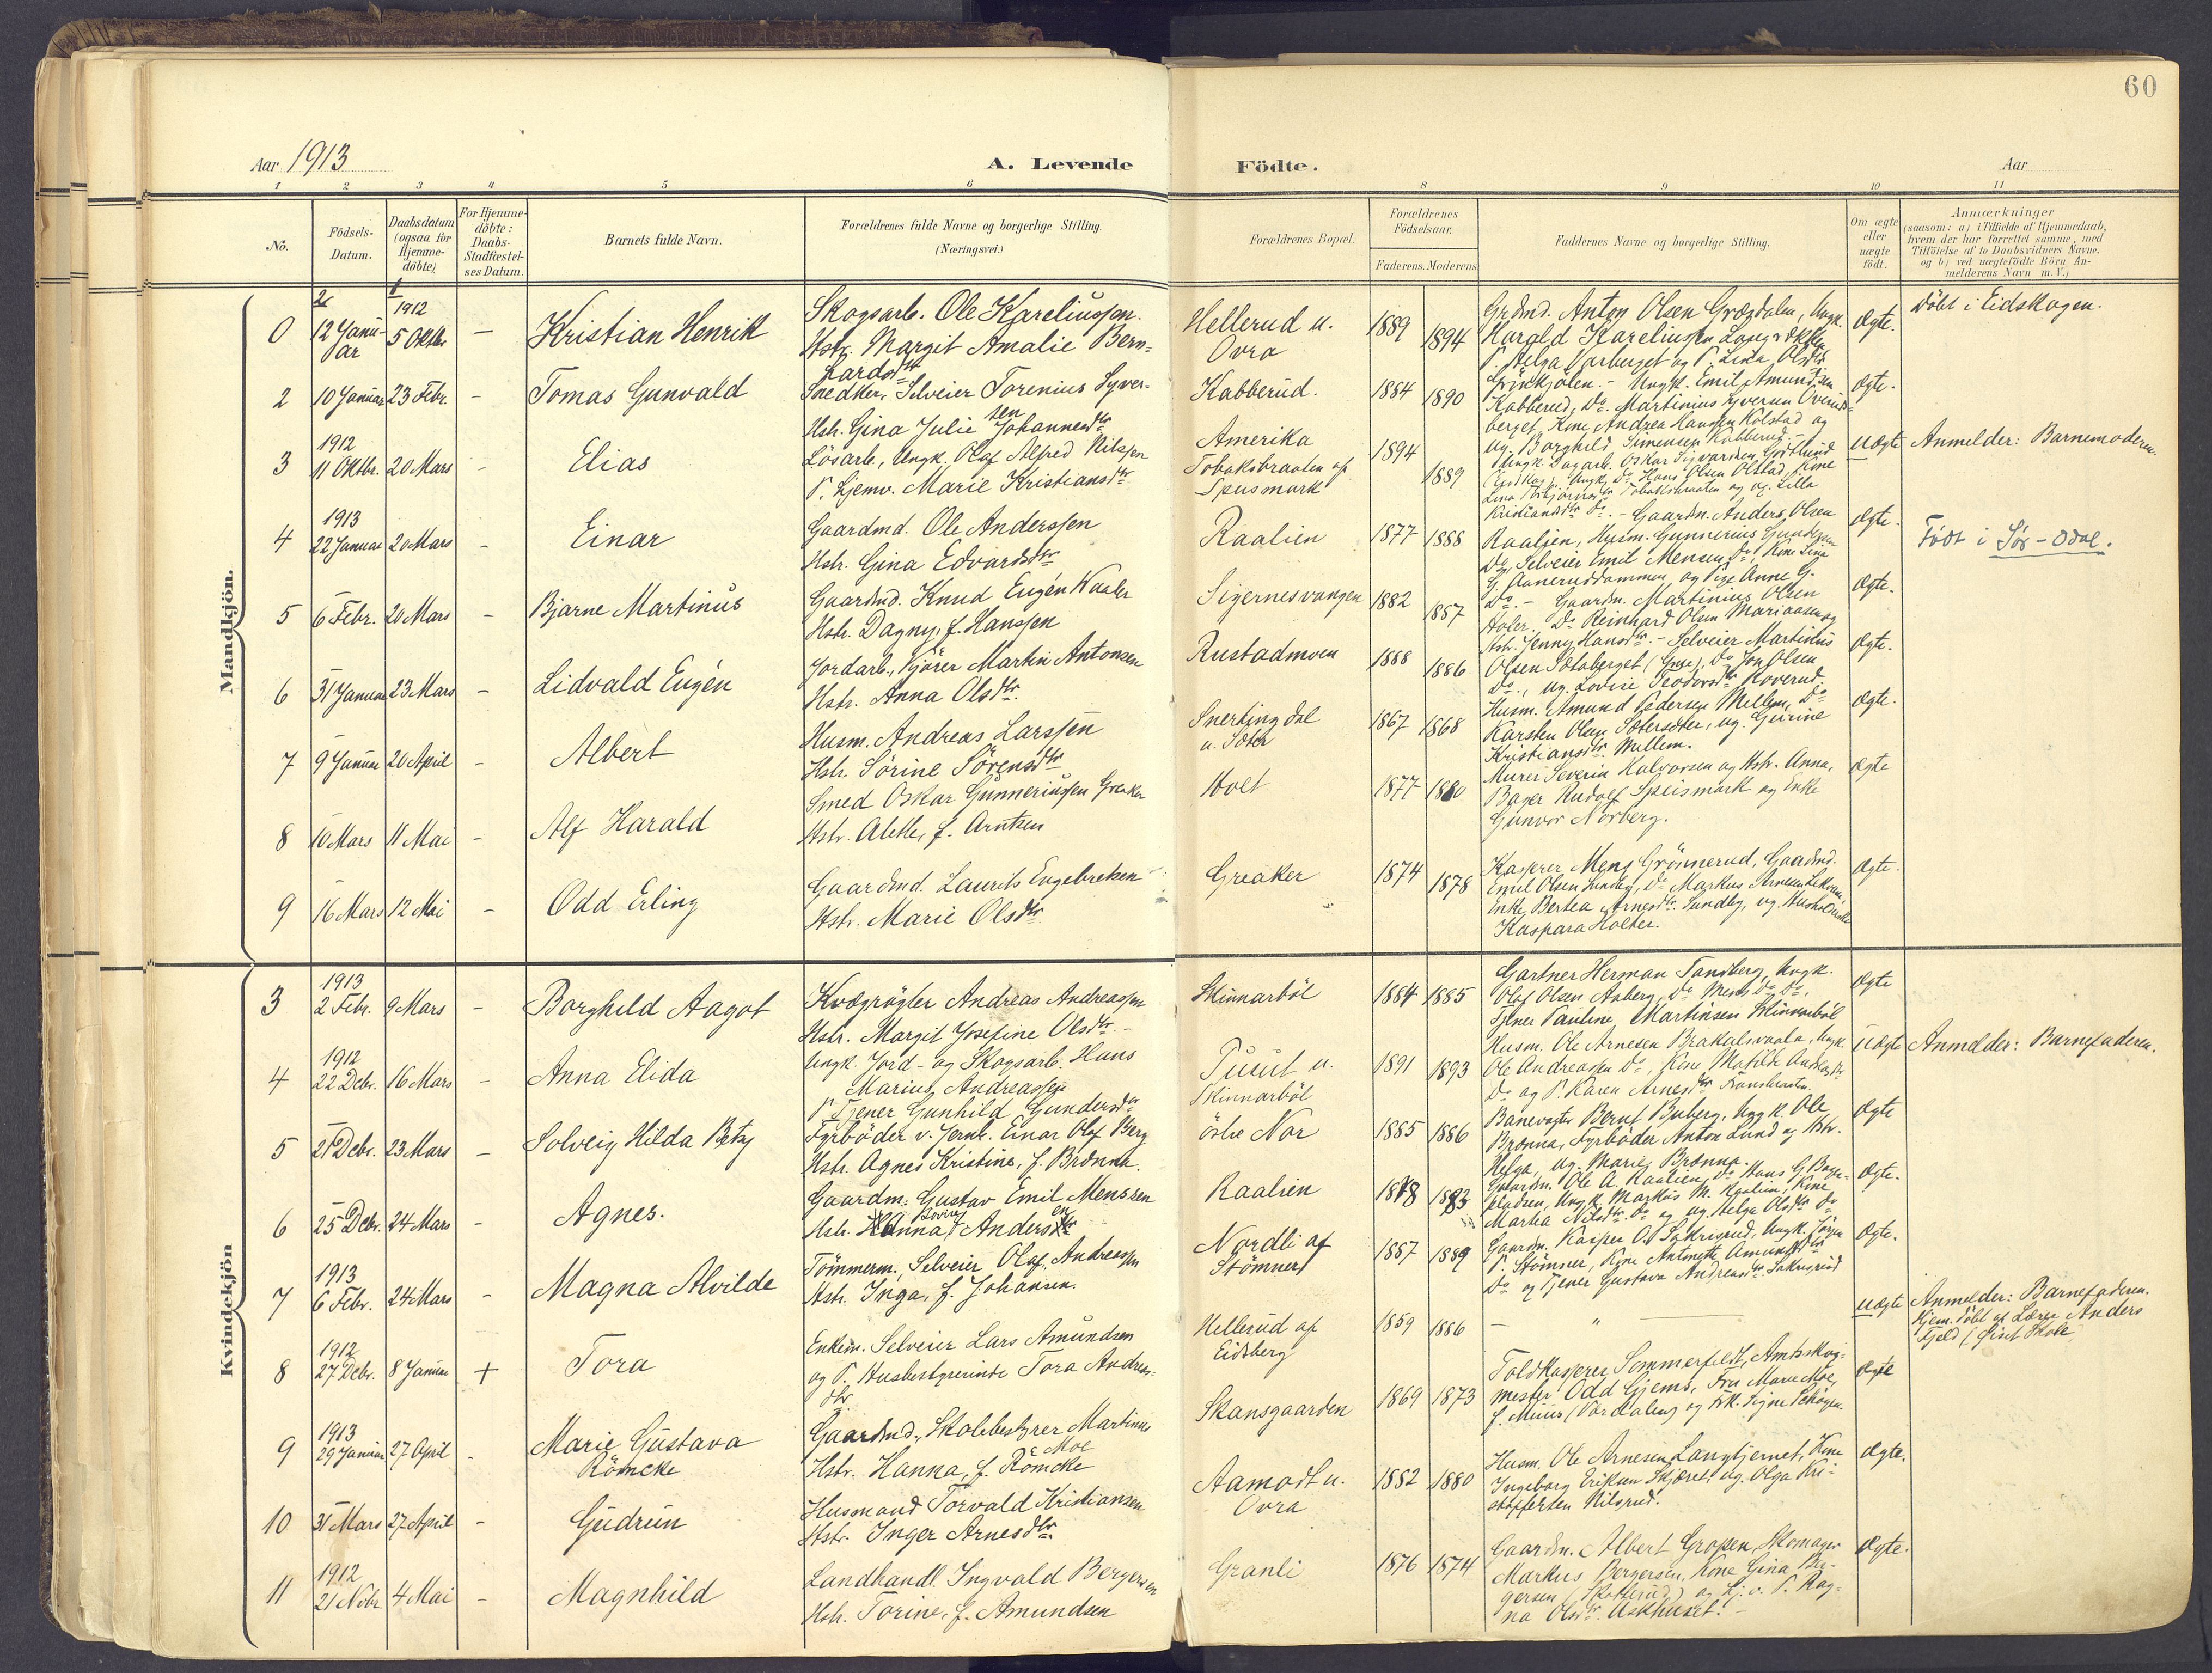 60
Aar 1913
A. Levende
Födte.
Aar
1 2 3 4 5 6 8 9 10 11
No.
Födsels-
Datum.
Daabsdatum
(ogsaa for
Hjemme-
döbte)
For Hjemme-
döbte:
Daabs-
Stadfæstel-
ses Datum.
Barnets fulde Navn.
Forældrenes fulde Navne og borgerlige Stilling.
(Næringsvei.)
Forældrenes Bopæl.
Forældrenes
Födselsaar.
Faderens. Moderens
Faddernes Navne og borgerlige Stilling.
Om ægte
eller
uægte
födt.
Anmærkninger
(saasom: a) i Tilfælde af Hjemmedaab,
hvem der har forrettet samme, med
Tilföielse af to Daabsvidners Navne.
og b) ved uægtefödte Börn An-
melderens Navn m. V.)
Mandkjön.
0
12 Janu-
ar
1912
5 Oktbr.
–
Kristian Henrik
Skogsarb. Ole Kareliussen.
Hstr. Margit Amalie Bern-
hardsdtr
Hellerud u.
Ovra
1889
1894
Grdmd. Anton Olsen Grædalen, Ungk.
Harald Kareliussen
P. Helga Varberget og P. Lina Olsdtr
Ægte.
Döbt i Eidskogen.
2
10 Januar
23 Febr.
-
Tomas Gunvald
Snedker, Selveier Torenius Syver-
sen
Hstr. Gina Julie Johannesdtr
Kabberud.
1884
1890
Ungk. Emil Amundsen
Kabberud, Do. Martinius Syversen Överud-
berget, Kone Andrea Hansen Kolstad og
ug. Borghild Simensen Kabberud.-
Ægte.
3
1912
11 Oktbr.
20 Mars
-
Elias
Lösarb., Ungk. Olaf Alfred Nilssen
P. hjemv. Marie Kristiansdtr
Amerika
Tobaksbraaten af
Speismark
1894
1889
Ungk. Dagarb. Oskar Sigvardsen
Ungk. Do Hans Olsen Olstad, Kone
Tobaksbraaten og ug. Lilla
Kristiansdtr Do.-
uægte
Anmelder: Barnemoderen.
4
1913
22 Januar
20 Mars
-
Einar
Gaardmd. Ole Anderssen
Hstr. Gina Edvardsdtr
Raalien
1877
1888
Gaardm. Anders Olsen
Raalien, Husm. Gunnerius Gundersen
Do, Selveier Emil Mensen Do, Kone Lina
G. Aaneruddammen og Pige Anne G.
Do.-
Ægte.
Födt i Sör-Odal.
5
6 Febr.
20 Mars
-
Bjarne Martinus
Gaardmd. Knud Eugén Waaler
Hstr. Dagny, f. Hanssen
Sigernesvangen
1882
1887
Gaardm. Martinius Olsen
Do Reinhard Olsen Mariaasen og
Hstr. Jenny Hansdtr.-
Ægte.
6
31 Januar
23 Mars
-
Lidvald Eugén
Jordarb., Kjörer Martin Antonsen
Hstr. Anna Olsdtr.
Rustadmoen
1888
1886
Selveier Martinius
Olsen Sætaberget (Grue), Do Jon Olsen
Do., ug. Lovise Teodorsdtr Roverud.
Ægte.
7
9 Januar
20 April
-
Albert
Husm. Andreas Larssen
Hstr. Sörine Sörensdtr
Snertingdal
u. Sæter
1867
1868
Husm. Amund Pedersen Mellem, Do
Karsten Olsen Sætersæter, ug. Gurine
Kristiansdtr Mellem.
Ægte.
8
10 Mars
11 Mai
-
Alf Harald
Smed Oskar Gunneriussen Greaker
Hstr. Alette, f. Arntzen
Holt
1877
1880
Murer Severin Halvorsen og Hstr. Anna,
Bager Rudolf Speismark og Enke
Gunvor Norberg.
Ægte
9
16 Mars
12 Mai
-
Odd Erling
Gaardmd. Laurits Engebretsen
Hstr. Marie Olsdtr.
Greaker
1874
1878
Kasserer Mens Grönnerud, Gaardmd.
Emil Olsen Sundby, Do Markus Arnesen
Enke Bertea Arnesdtr. Sundby, ug. Husholderske
Kaspara Holter.
Ægte.
Kvindekjön
3
1913
2 Febr.
9 Mars
-
Borghild Aagot
Kvægrögter Andreas Andreassen
Hstr. Margit Josefine Olsdtr.-
Skinnarböl
1884
1885
Gartner Herman Tandberg, Ungk.
Olaf Olsen Aaberg, Do Mens Do Do,
Tjener Pauline Martinsen Skinnarböl
Ægte
4
1912
22 Debr.
16 Mars
-
Anna Elida
Ungk. Jord- og Skogsarb. Hans
Marius Andreassen
P. Tjener Gunhild Gundersdtr
Puust u.
Skinnarböl
1891
1893
Husm. Ole Arnesen Brakalsvaala, Ungk.
Ole Andreassen Do, Kone Matilde Andreasdtr
Do og P. Karen Arnesdtr
uægte
Anmelder: Barnefaderen.
5
21 Debr.
23 Mars
-
Solveig Hilda Betzy
Fyrböder v. Jernb. Einar Olaf Berg
Hstr. Agnes Kristine, f. Brænna.
östre Nor
1885
1886
Banevogter Bernt Buberg, Ungk. Ole
Brænna, Fyrböder Anton Lund og Hstr.
Helga, ug. Marie Brænna.
Ægte
6
25 Debr.
24 Mars
-
Agnes.
Gaardm. Gustav Emil Menssen
Hstr. Anna Andersen
Raalien
1878
1883
Gaardm. Ole A. Raalien, Do Hans G.
Ungk. Markus M. Raalien, Kone
Martea Nilsdtr. Do og ug. Helga Olsdtr Do
Ægte.
7
1913
6 Febr.
24 Mars
-
Magna Alvilde
Tömmerm., Selveier Olaf Andreassen
Hstr. Inga, f. Johansen.
Nordli af
Stömner
1887
1889
Gaardm. Kasper O. Sakrisrud, Ungk. Jörgen
P. Stömner, Kone Antonette Amundsdtr
Do og Tjener Gustava Andreasdtr. Sakrisrud
Ægte.
8
1912
27 Debr.
8 Januar
+
Tora
Enkem. Selveier Lars Amundsen
og P. Husbestyrerinde Tora Andreas-
dtr
Hellerud af
Eidsberg
1859
1886
– " –
uægte
Anmelder: Barnefaderen.
Hjem. döbt af Lærer Anders
Fjeld
9
1913
29 Januar
27 April
-
Marie Gustava
Römcke
Gaardmd., Skolebestyrer Martinus
Moe
Hstr. Hanna, f. Römcke
Skansgaarden
1869
1873
Toldkasserer Sommerfeldt, Amtsskog-
mester Odd Gjems, Fru Marie Moe,
og Frk. Signe
Ægte
10
31 Mars
27 April
-
Gudrun
Husmand Torvald Kristiansen
Hstr. Inger Arnesdtr.
Aamodt u.
Ovra
1882
1880
Husm. Ole Arnesen Langtjernet, Kone
Ingeborg Eriksen Skjæret, ug. Olga Kri-
stoffersen Nilsrud.
Ægte.
11
1912
21 Nobr.
4 Mai
-
Magnhild
Landhandl. Ingvald Bergersen
Hstr. Torine, f. Amundsen
Granli
1876
1874
Gaardm. Albert Gropen, Skomager
Markus Bergersen, Kone Gina Ber-
gersen (Skotterud) og Hj. v. P. Rag-
na Olsdtr.
Ægte.